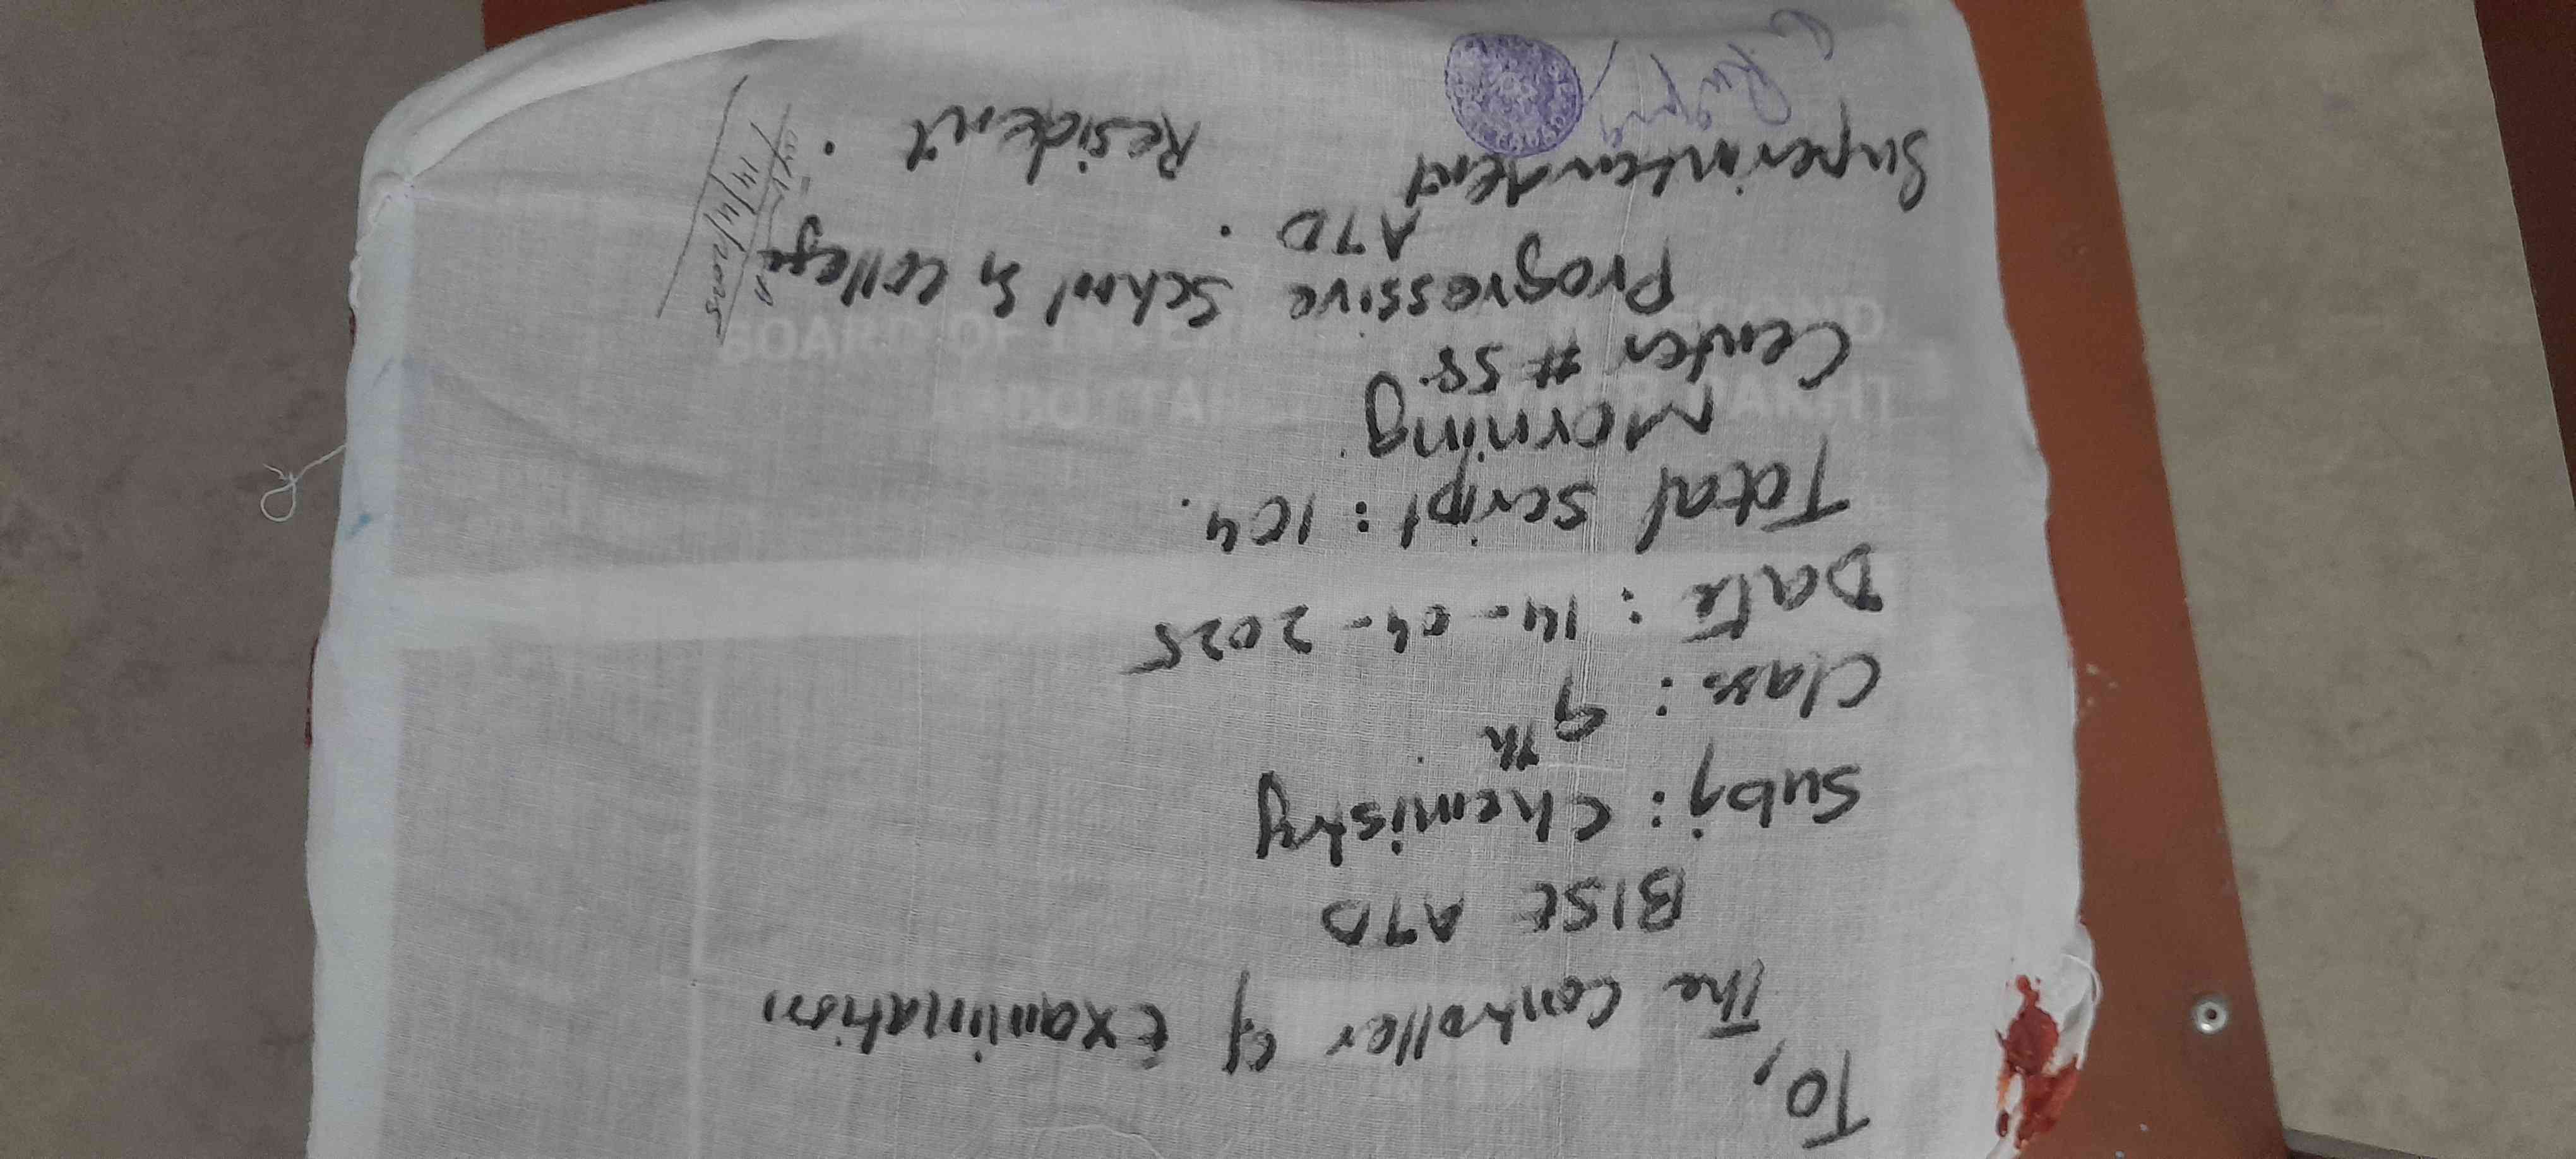 To,
The Controller of Examination
BISE ATD
Subj: Chemistry
Class: 9th
Date: 14-04-2025
Total Script: 104.
Morning
Center # 58
Progressive School & College
ATD.
Superintendent Resident.
14/4/2025
BOARD OF